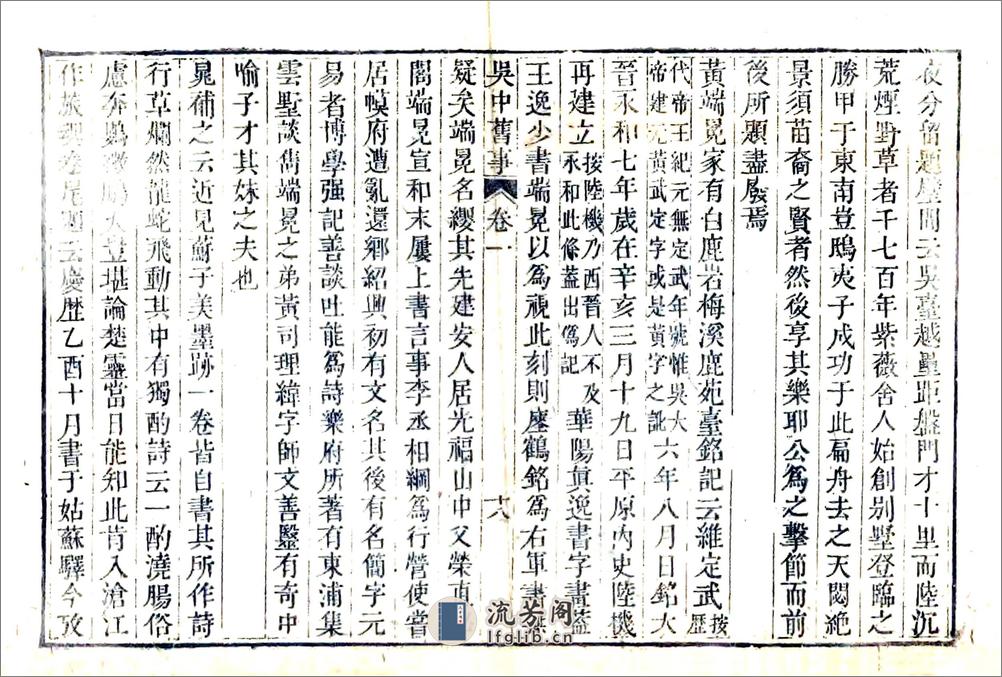 夜分留題屋間云吳臺越壘距盤門才十里而陸沉
荒煙野草者千七百年紫薇舍人始創別墅登臨之
勝甲于東南豈鴟夷子成功于此扁舟去之天閟絶
景須苗裔之賢者然後享其樂耶公爲之擊節而前
後所題盡廢焉
黃端冕家有白鹿岩梅溪鹿苑臺銘記云維定武按歷
代帝王紀元無定武年號惟吳大帝建元黃武定字或是黃字之訛六年八月日銘大
晉永和七年歲在辛亥三月十九日平原內史陸機
再建立按陸機乃西晉人不及永和此條蓋出僞記華陽眞逸書字畫蓋
王逸少書端冕以爲視此刻則瘞鶴銘爲右軍書
吳中舊事 卷一 十八
疑矣端冕名纓其先建安人居光福山中父榮直
閣端冕宣和末屢上書言事李丞相綱爲行營使嘗
居幙府遭亂還鄉紹興初有文名其後有名簡字元
易者博學强記善談吐能爲詩樂府所著有東浦集
雲墅談雋端冕之弟黃司理緯字師文善醫有奇中
喻子才其妹之夫也
晁補之云近見蘇子美墨跡一卷皆自書其所作詩
行草爛然龍蛇飛動其中有獨酌詩云一酌澆腸俗
慮奔鷃鵬大豈堪論楚靈當日能知此肯入滄江
作旅魂卷尾題云慶歷乙酉十月書于姑蘇驛今攷
流芳阁
lfglib.cn